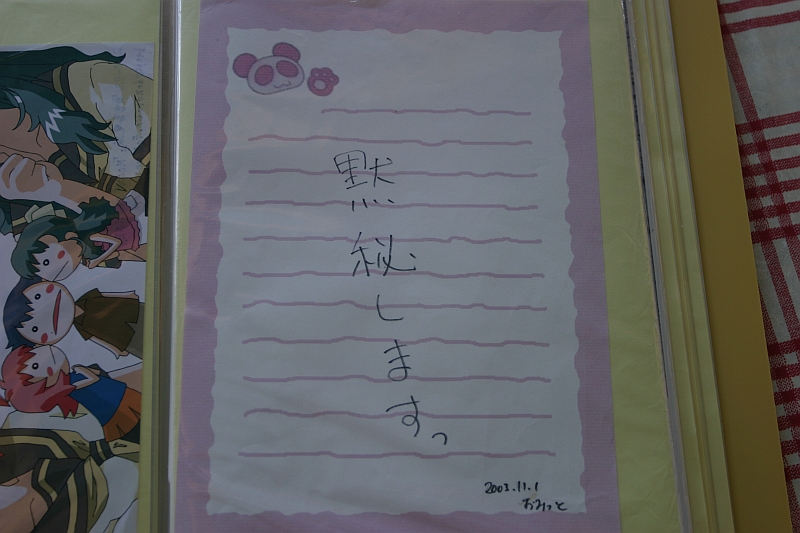 黙秘します。
2003.11.1
おみっと